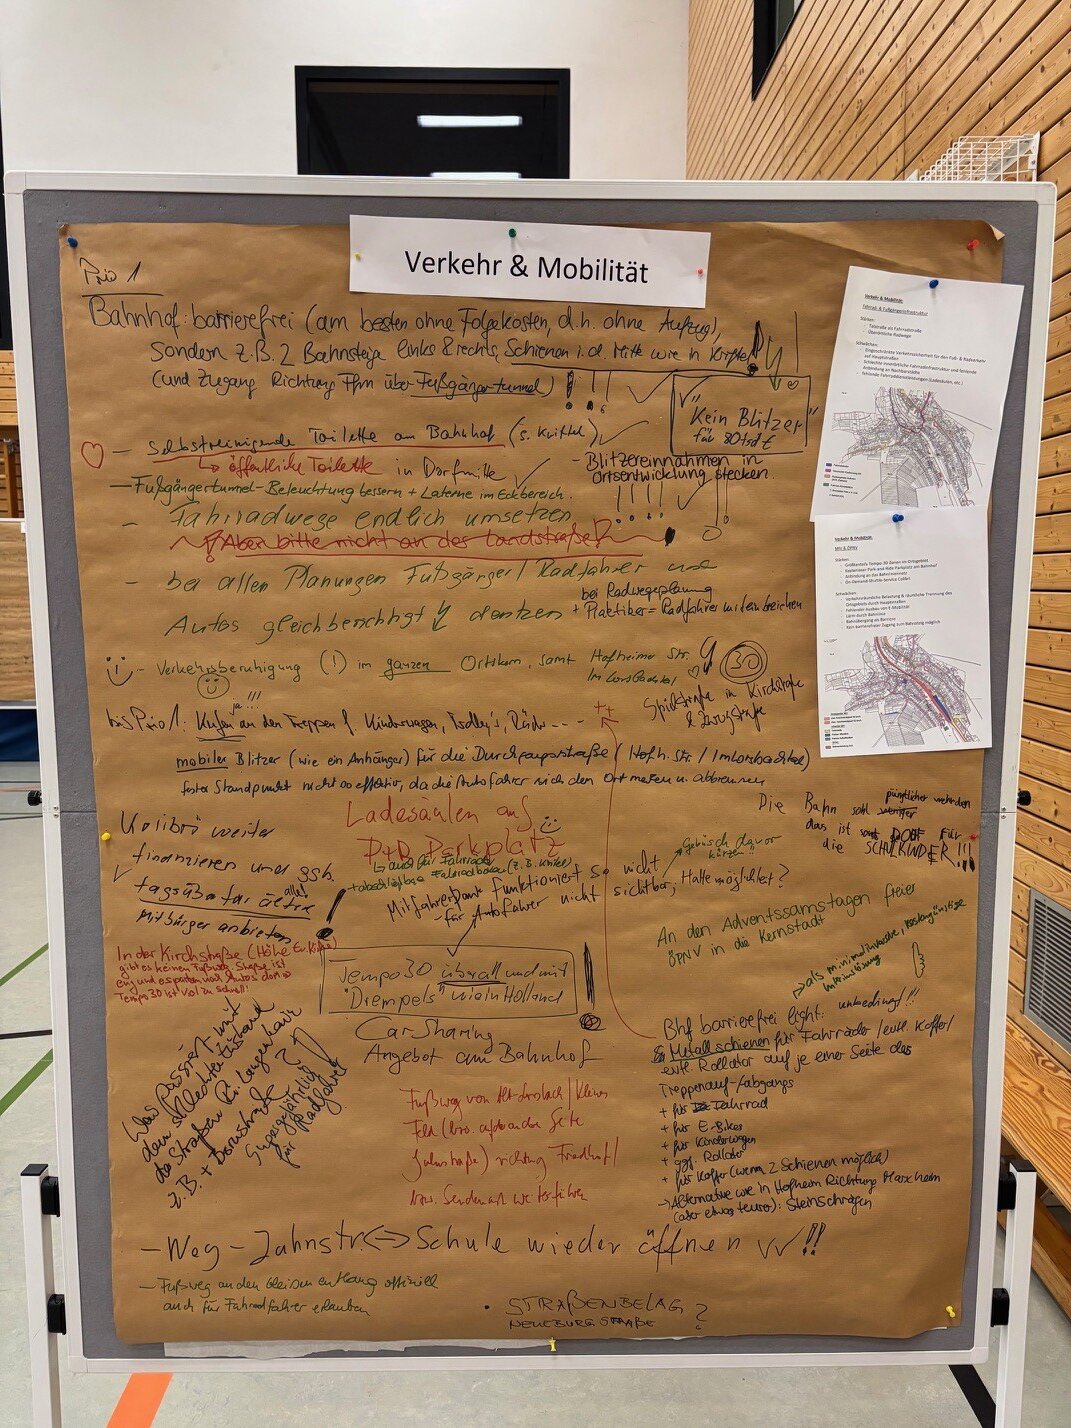 Verkehr & Mobilität
Prio 1
Bahnhof: barrierefrei (am besten ohne Folgekosten, d.h. ohne Aufzug),
sondern z.B. 2 Bahnsteige links & rechts, Schienen i.d. Mitte wie in Kriftel
(und Zugang Richtung Ffm über Fußgängertunnel) !!!
"Kein Blitzer"
für 80tsd €
- selbstreinigende Toilette am Bahnhof (s. Kriftel)
↳ öffentliche Toilette in Dorfmitte
- Blitzereinnahmen in
Ortsentwicklung stecken.
- Fußgängertunnel-Beleuchtung bessern + Laterne im Eckbereich.
- Fahrradwege endlich umsetzen
Aber bitte nicht an der Landstraße!
- bei allen Planungen Fußgänger / Radfahrer und
Autos gleichberechtigt denken
bei Radwegeplanung
+ Praktiker = Radfahrer miteinbeziehen
- Verkehrsberuhigung (!) im ganzen Ortskern, samt Hofheimer Str.
Im Lorsbachtal
30
Spielstraße in Kirchstraße
ja!!!
bis Prio 1: Kufen an den Treppen f. Kinderwagen, Trolley's, Räder ---
mobiler Blitzer (wie ein Anhänger) für die Durchgangsstraße (Hofh. Str. / Im Lorsbachtal)
fester Standpunkt nicht so effektiv, da die Autofahrer sich den Ort merken u. abbremsen
Die Bahn soll weniger pünktlicher werden
das ist DOOF für
die SCHULKINDER!!!
Ladesäulen auf
P+D Parkplatz
↳ auch für Fahrräder
+ abschließbare Fahrradboxen (z.B. Kriftel)
Kolibri weiter
finanzieren und ggf.
tagsüber für ältere
alle!
Mitbürger anbieten
Mitfahrerbank funktioniert so nicht
- für Autofahrer nicht sichtbar, Halte möglichkeit?
Gebüsch davor
kürzen!!
An den Adventssamstagen freier
ÖPNV in die Kernstadt
In der Kirchstraße (Höhe Ev. Kirche)
gibt es keinen Fußweg. Straße ist
eng und es parken noch Autos dort
Tempo 30 ist viel zu schnell!
Tempo 30 überall und mit
"Drempels" wie in Holland
→ als minimalinvasive, kostengünstige
Interimslösung
Car-Sharing
Angebot am Bahnhof
Was passiert mit
dem schlechten Zustand
der Straßen Ri. Langenhain
z.B. + Bornstraße?
Supergefährlich
für Radfahrer!
Bhf barrierefrei light: unbedingt!!!
Metallschienen für Fahrräder / evtl. Koffer /
evtl. Rollator auf je einer Seite des
Treppenauf-/abgangs
+ für Fahrrad
+ für E-Bikes
+ für Kinderwagen
+ ggf. Rollator
+ für Koffer (wenn 2 Schienen möglich)
→ Alternative wie in Hofheim Richtung Marxheim
(aber etwas teurer): Steinschrägen
Fußweg von Alt-Lorsbach / kleines
Feld (bzw. auf der anderen Seite
Jahnstraße) richtung Friedhof /
bzw. weiterführen
- Weg - Jahnstr. ⇔ Schule wieder öffnen ✓✓ !!!
- Fußweg an den Gleisen entlang offiziell
auch für Fahrradfahrer erlauben
• STRAßENBELAG
NEUEBURGSTRAßE ?
Verkehr & Mobilität:
Fahrrad- & Fußgängerinfrastruktur
Stärken:
- Talstraße als Fahrradstraße
- Überörtliche Radwege
Schwächen:
- Eingeschränkte Verkehrssicherheit für den Fuß- & Radverkehr
auf Hauptstraßen
- Schlechte innerörtliche Fahrradinfrastruktur und fehlende
Anbindung an Nachbarstädte
- fehlende Fahrraddienstleistungen (Ladesäulen, etc.)
Verkehr & Mobilität:
MIV & ÖPNV
Stärken:
- Größtenteils Tempo-30 Zonen im Ortsgebiet
- Kostenloser Park-and-Ride Parkplatz am Bahnhof
- Anbindung an das Bahnliniennetz
- On-Demand-Shuttle-Service Colibri
Schwächen:
- Verkehrsräumliche Belastung & räumliche Trennung des
Ortsgebiets durch Hauptstraßen
- Fehlender Ausbau von E-Mobilität
- Lärm durch Bahnlinie
- Bahnübergang als Barriere
- Kein barrierefreier Zugang zum Bahnsteig möglich